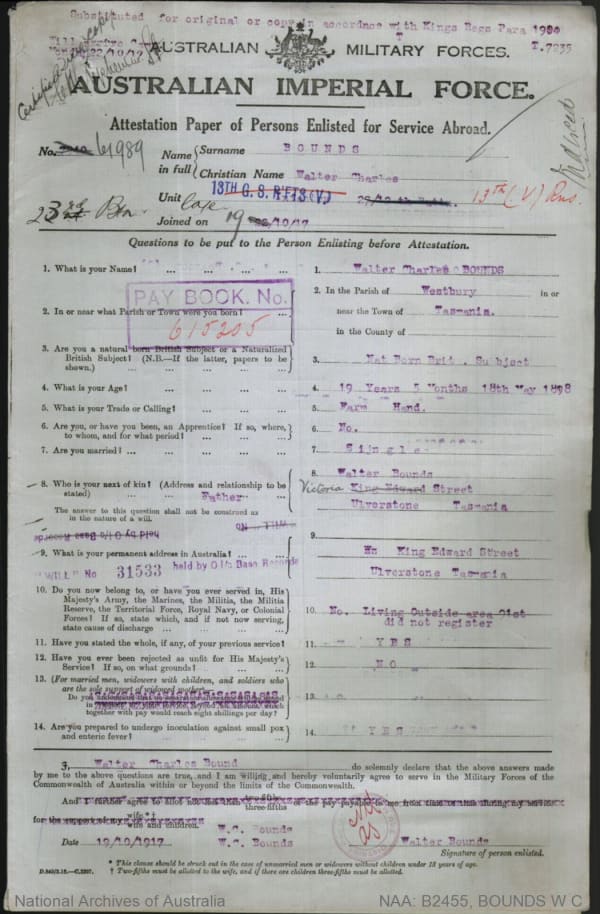 Substituted for original or copy in accordance with Kings Regs Para 1980
T.7235
AUSTRALIAN MILITARY FORCES.
AUSTRALIAN IMPERIAL FORCE.
Attestation Paper of Persons Enlisted for Service Abroad.
No. 61989
Name in full
Surname BOUNDS
Christian Name Walter Charles
Unit 13TH G. S. R'FTS (V.)
13th (V) Rns.
Joined on 19/10/17
Questions to be put to the Person Enlisting before Attestation.
1. What is your Name? ... ... ... ...
1. Walter Charles BOUNDS
PAY BOOK. No.
615205
2. In or near what Parish or Town were you born? ...
2. In the Parish of Westbury in or
near the Town of Tasmania.
in the County of
3. Are you a natural born British Subject or a Naturalized
British Subject? (N.B.—If the latter, papers to be
shown.) ... ... ... ... ...
3. Nat Born Brit. Subject
4. What is your Age? ... ... ... ...
4. 19 Years 5 Months 18th May 1898
5. What is your Trade or Calling? ... ... ...
5. Farm Hand.
6. Are you, or have you been, an Apprentice? If so, where,
to whom, and for what period? ... ... ...
6. No.
7. Are you married? ... ... ... ...
7. Single
8. Who is your next of kin? (Address and relationship to be
stated) ... Father
The answer to this question shall not be construed as
in the nature of a will.
8. Walter Bounds
Victoria King Edward Street
Ulverstone Tasmania
WILL No
held by O i/c Base Records
9. What is your permanent address in Australia? ... ...
"WILL" No 31533 held by O i/c Base Records
9.
King Edward Street
Ulverstone Tasmania
10. Do you now belong to, or have you ever served in, His
Majesty's Army, the Marines, the Militia, the Militia
Reserve, the Territorial Force, Royal Navy, or Colonial
Forces? If so, state which, and if not now serving,
state cause of discharge ... ... ...
10. No. Living Outside area 91st
did not register
11. Have you stated the whole, if any, of your previous service?
11. YES
12. Have you ever been rejected as unfit for His Majesty's
Service? If so, on what grounds? ... ...
12. NO
13. (For married men, widowers with children, and soldiers who
are the sole support of widowed mother—
together with pay would reach eight shillings per day?
13.
14. Are you prepared to undergo inoculation against small pox
and enteric fever? ... ... ... ...
14. YES
I, Walter Charles Bound do solemnly declare that the above answers made
by me to the above questions are true, and I am willing and hereby voluntarily agree to serve in the Military Forces of the
Commonwealth of Australia within or beyond the limits of the Commonwealth.
And I further agree to allot not less than two-fifths three-fifths of the pay payable to me from time to time during my service
for the support of my wife.* †
wife and children.
W.C. Bounds
Date 19/10/1917
W.C. Bounds
Walter Bounds
Signature of person enlisted.
* This clause should be struck out in the case of unmarried men or widowers without children under 18 years of age.
† Two-fifths must be allotted to the wife, and if there are children three-fifths must be allotted.
National Archives of Australia
NAA: B2455, BOUNDS W C